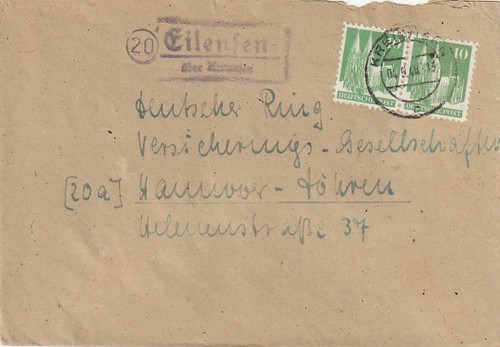 20
Eilensen
über
10
10
DEUTSCHE POST
DEUTSCHE POST
Deutscher Ring
Versicherungs-Gesellschaften
[20a] Hannover-Döhren
Helenenstraße 37